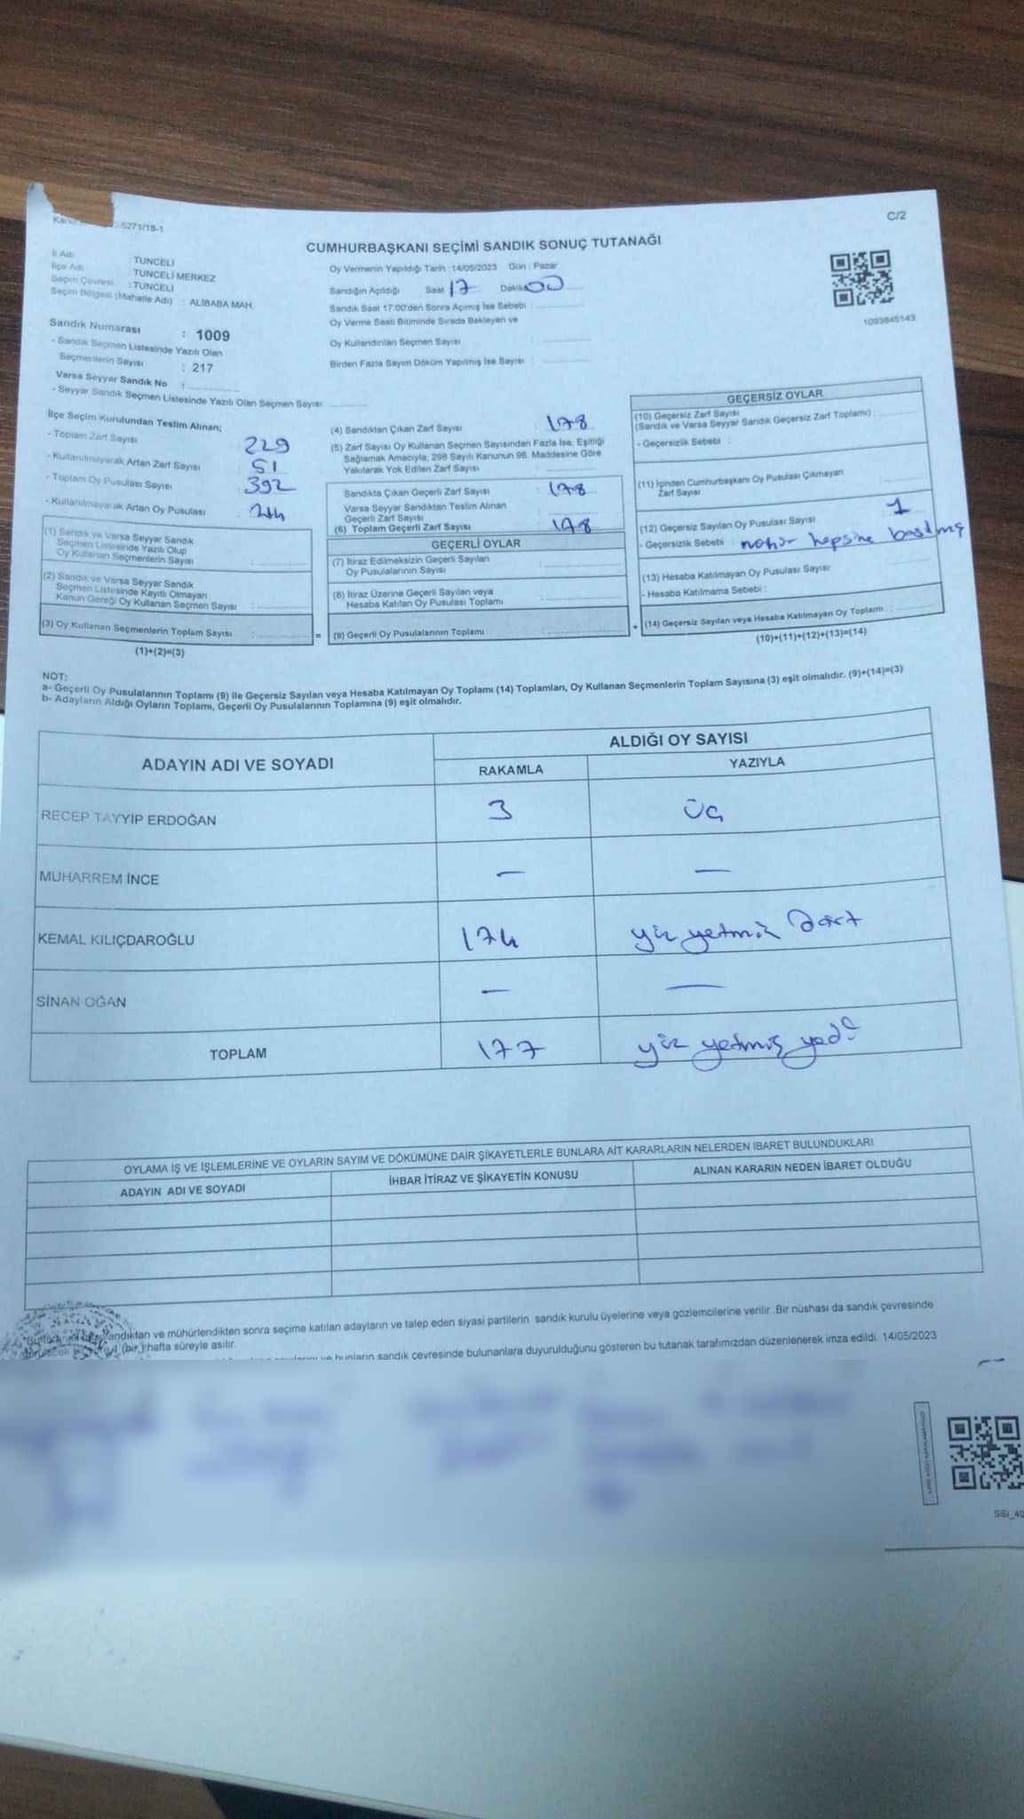 5271/18-1
C/2
CUMHURBAŞKANI SEÇİMİ SANDIK SONUÇ TUTANAĞI
İl Adı : TUNCELİ
İlçe Adı : TUNCELİ MERKEZ
Seçim Çevresi : TUNCELİ
Seçim Bölgesi (Mahalle Adı) : ALİBABA MAH.
Sandık Numarası : 1009
- Sandık Seçmen Listesinde Yazılı Olan
Seçmenlerin Sayısı : 217
Varsa Seyyar Sandık No :
- Seyyar Sandık Seçmen Listesinde Yazılı Olan Seçmen Sayısı
Oy Vermenin Yapıldığı Tarih : 14/05/2023 Gün : Pazar
Sandığın Açıldığı Saat 17 Dakika 00
Sandık Saat 17:00'den Sonra Açmış İse Sebebi
Oy Verme Saati Bitiminde Sırada Bekleyen ve
Oy Kullandırılan Seçmen Sayısı :
Birden Fazla Sayım Döküm Yapılmış İse Sayısı :
1093845143
İlçe Seçim Kurulundan Teslim Alınan;
- Toplam Zarf Sayısı : 229
- Kullanılmayarak Artan Zarf Sayısı : 51
- Toplam Oy Pusulası Sayısı : 392
- Kullanılmayarak Artan Oy Pusulası : 214
(1) Sandık ve Varsa Seyyar Sandık
Seçmen Listesinde Yazılı Olup
Oy Kullanan Seçmenlerin Sayısı :
(2) Sandık ve Varsa Seyyar Sandık
Seçmen Listesinde Kayıtlı Olmayan
Kanun Gereği Oy Kullanan Seçmen Sayısı :
(3) Oy Kullanan Seçmenlerin Toplam Sayısı :
(1)+(2)=(3)
(4) Sandıktan Çıkan Zarf Sayısı : 178
(5) Zarf Sayısı Oy Kullanan Seçmen Sayısından Fazla İse, Eşitliği
Sağlamak Amacıyla, 298 Sayılı Kanunun 98. Maddesine Göre
Yakılarak Yok Edilen Zarf Sayısı :
Sandıkta Çıkan Geçerli Zarf Sayısı : 178
Varsa Seyyar Sandıktan Teslim Alınan
Geçerli Zarf Sayısı :
(6) Toplam Geçerli Zarf Sayısı : 178
GEÇERLİ OYLAR
(7) İtiraz Edilmeksizin Geçerli Sayılan
Oy Pusulalarının Sayısı :
(8) İtiraz Üzerine Geçerli Sayılan veya
Hesaba Katılan Oy Pusulası Toplamı :
= (9) Geçerli Oy Pusulalarının Toplamı :
GEÇERSİZ OYLAR
(10) Geçersiz Zarf Sayısı
(Sandık ve Varsa Seyyar Sandık Geçersiz Zarf Toplamı) :
- Geçersizlik Sebebi :
(11) İçinden Cumhurbaşkanı Oy Pusulası Çıkmayan
Zarf Sayısı :
(12) Geçersiz Sayılan Oy Pusulası Sayısı : 1
- Geçersizlik Sebebi : mohür hepsine basılmış
(13) Hesaba Katılmayan Oy Pusulası Sayısı :
- Hesaba Katılmama Sebebi :
+ (14) Geçersiz Sayılan veya Hesaba Katılmayan Oy Toplamı :
(10)+(11)+(12)+(13)=(14)
NOT:
a- Geçerli Oy Pusulalarının Toplamı (9) ile Geçersiz Sayılan veya Hesaba Katılmayan Oy Toplamı (14) Toplamları, Oy Kullanan Seçmenlerin Toplam Sayısına (3) eşit olmalıdır. (9)+(14)=(3)
b- Adayların Aldığı Oyların Toplamı, Geçerli Oy Pusulalarının Toplamına (9) eşit olmalıdır.
ADAYIN ADI VE SOYADI
ALDIĞI OY SAYISI
RAKAMLA YAZIYLA
RECEP TAYYİP ERDOĞAN 3 üç
MUHARREM İNCE — —
KEMAL KILIÇDAROĞLU 174 yüz yetmiş dört
SİNAN OĞAN — —
TOPLAM 177 yüz yetmiş yedi
OYLAMA İŞ VE İŞLEMLERİNE VE OYLARIN SAYIM VE DÖKÜMÜNE DAİR ŞİKAYETLERLE BUNLARA AİT KARARLARIN NELERDEN İBARET BULUNDUKLARI
ADAYIN ADI VE SOYADI İHBAR İTİRAZ VE ŞİKAYETİN KONUSU ALINAN KARARIN NEDEN İBARET OLDUĞU
andıktan ve mühürlendikten sonra seçime katılan adayların ve talep eden siyasi partilerin sandık kurulu üyelerine veya gözlemcilerine verilir. Bir nüshası da sandık çevresinde
(bir) hafta süreyle asılır.
ve bunların sandık çevresinde bulunanlara duyurulduğunu gösteren bu tutanak tarafımızdan düzenlenerek imza edildi. 14/05/2023